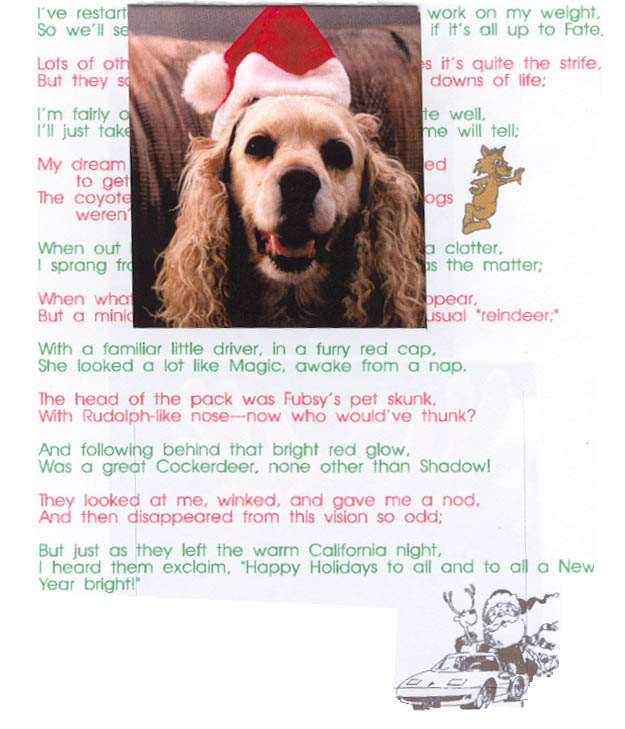 I've work on my weight,
So we'll if it's all up to Fate.
Lots of it's quite the strife,
But they downs of life;
I'm fairly well,
I'll just take will tell;
My dream
to get
The coyote
When out a clatter,
I sprang the matter;
When
But a "reindeer;"
With a familiar little driver, in a furry red cap,
She looked a lot like Magic, awake from a nap.
The head of the pack was Fubsy's pet skunk,
With Rudolph-like nose---now who would've thunk?
And following behind that bright red glow,
Was a great Cockerdeer, none other than Shadow!
They looked at me, winked, and gave me a nod,
And then disappeared from this vision so odd;
But just as they left the warm California night,
I heard them exclaim, "Happy Holidays to all and to all a New
Year bright!"